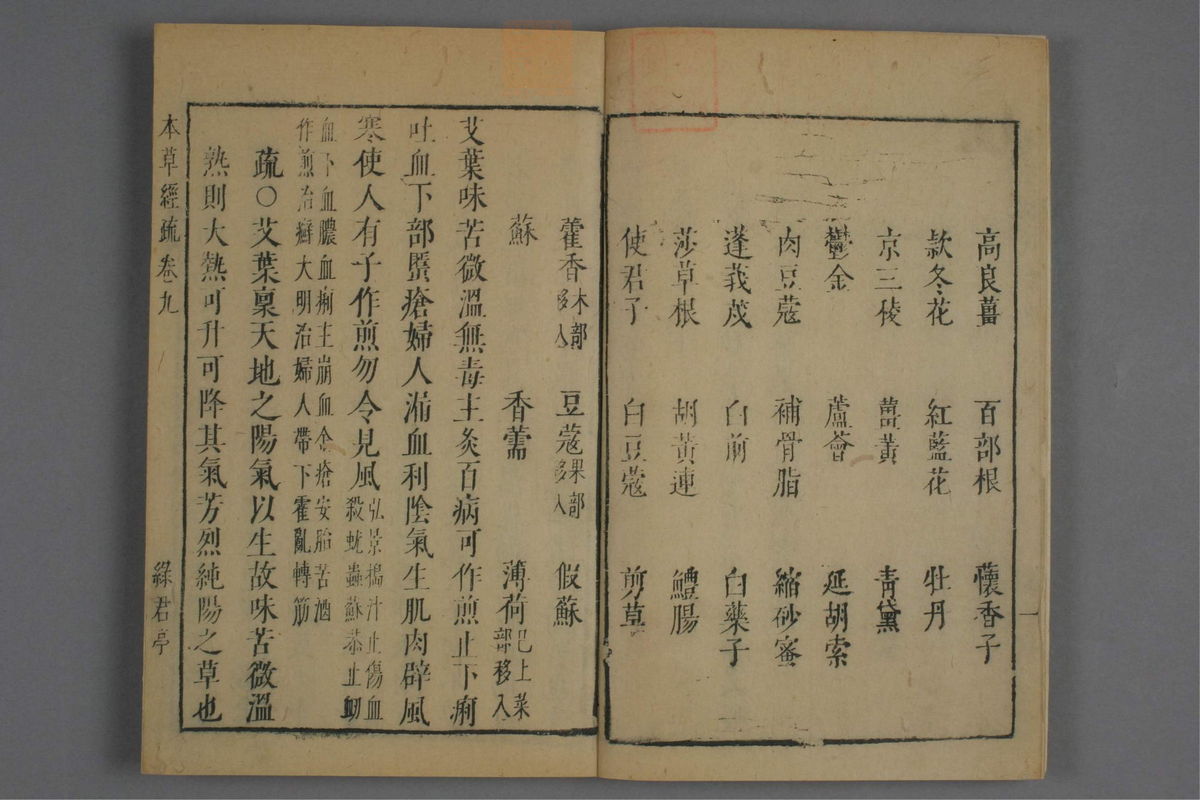 高良薑 百部根 蘹香子
款冬花 紅藍花 牡丹
京三稜 薑黃 青黛
鬱金 蘆薈 延胡索
肉豆蔻 補骨脂 縮砂蜜
蓬莪茂 白前 白藥子
莎草根 胡黃連 鱧腸
使君子 白豆蔻 剪草
一
藿香木部移入 豆蔻果部移入 假蘇
蘇 香薷 薄荷已上菜部移入
艾葉味苦微溫無毒主灸百病可作煎止下痢
吐血下部䘌瘡婦人漏血利陰氣生肌肉辟風
寒使人有子作煎勿令見風弘景搗汁止傷血殺蚘蟲蘇恭止衂
血下血膿血痢主崩血金瘡安胎苦酒
作煎治癬大明治婦人帶下霍亂轉筋
疏○艾葉稟天地之陽氣以生故味苦微溫
熟則大熱可升可降其氣芳烈純陽之草也
本草經疏卷九 綠君亭